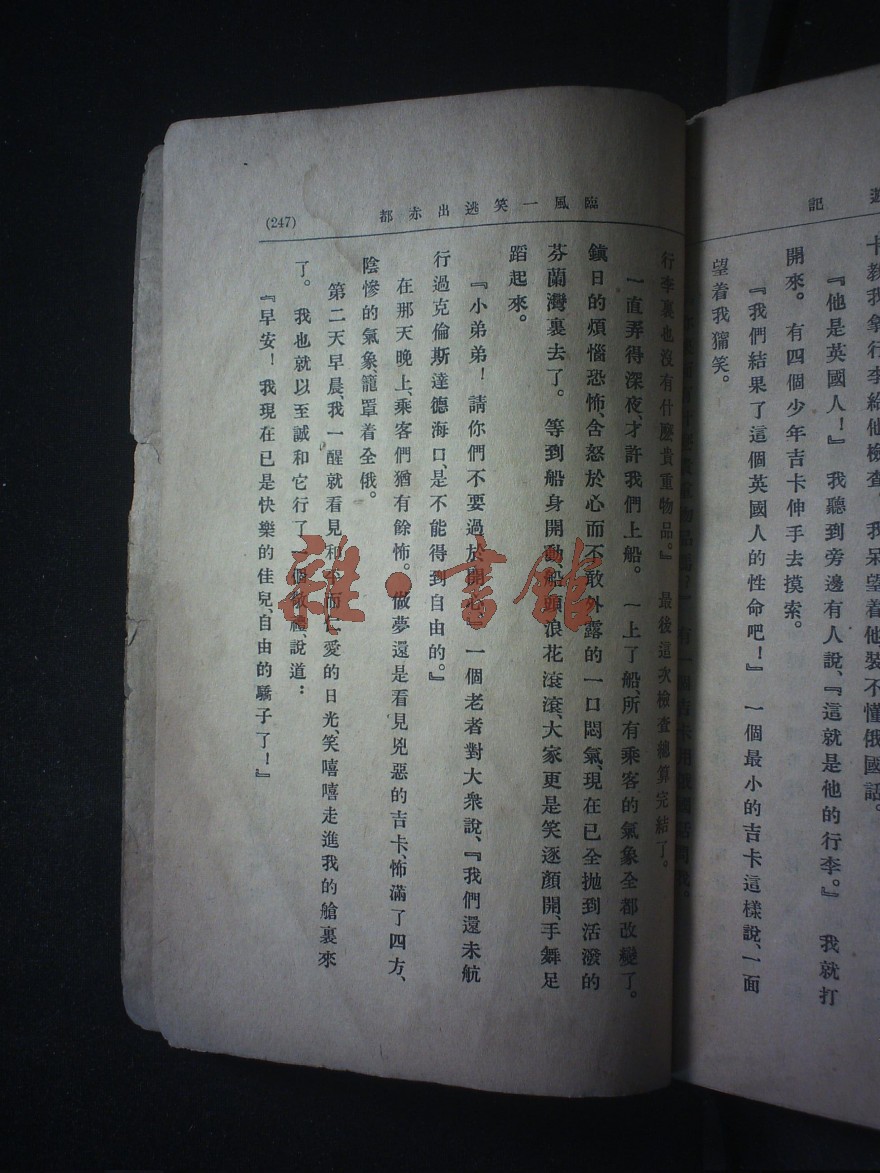 遊記
卡教我拿行李給他檢查、我呆望着他裝不懂俄國話。
『他是英國人！』 我聽到旁邊有人說、『這就是他的行李。』 我就打
開來。 有四個少年吉卡伸手去摸索。
『我們結果了這個英國人的性命吧！』 一個最小的吉卡這樣說、一面
望着我獰笑。
臨風一笑逃出赤都
(247)
行李裏也沒有什麼貴重物品。』 最後這次檢查總算完結了。
一直弄得深夜、才許我們上船。 一上了船、所有乘客的氣象全都改變了。
鎮日的煩惱恐怖、含怒於心而不敢外露的一口悶氣、現在已全拋到活潑的
芬蘭灣裏去了。 等到船身開動船頭浪花滾滾、大家更是笑逐顏開、手舞足
蹈起來。
『小弟弟！請你們不要過於開心、』一個老者對大衆說、『我們還未航
行過克倫斯達德海口、是不能得到自由的。』
在那天晚上、乘客們猶有餘怖。 做夢還是看見兇惡的吉卡、怖滿了四方、
陰慘的氣象、籠罩着全俄。
第二天早晨、我一醒就看見和平而仁愛的日光、笑嘻嘻走進我的艙裏來
了。 我也就以至誠和它行了一個敬禮、說道：
『早安！我現在已是快樂的佳兒、自由的驕子了！』
雜·書館